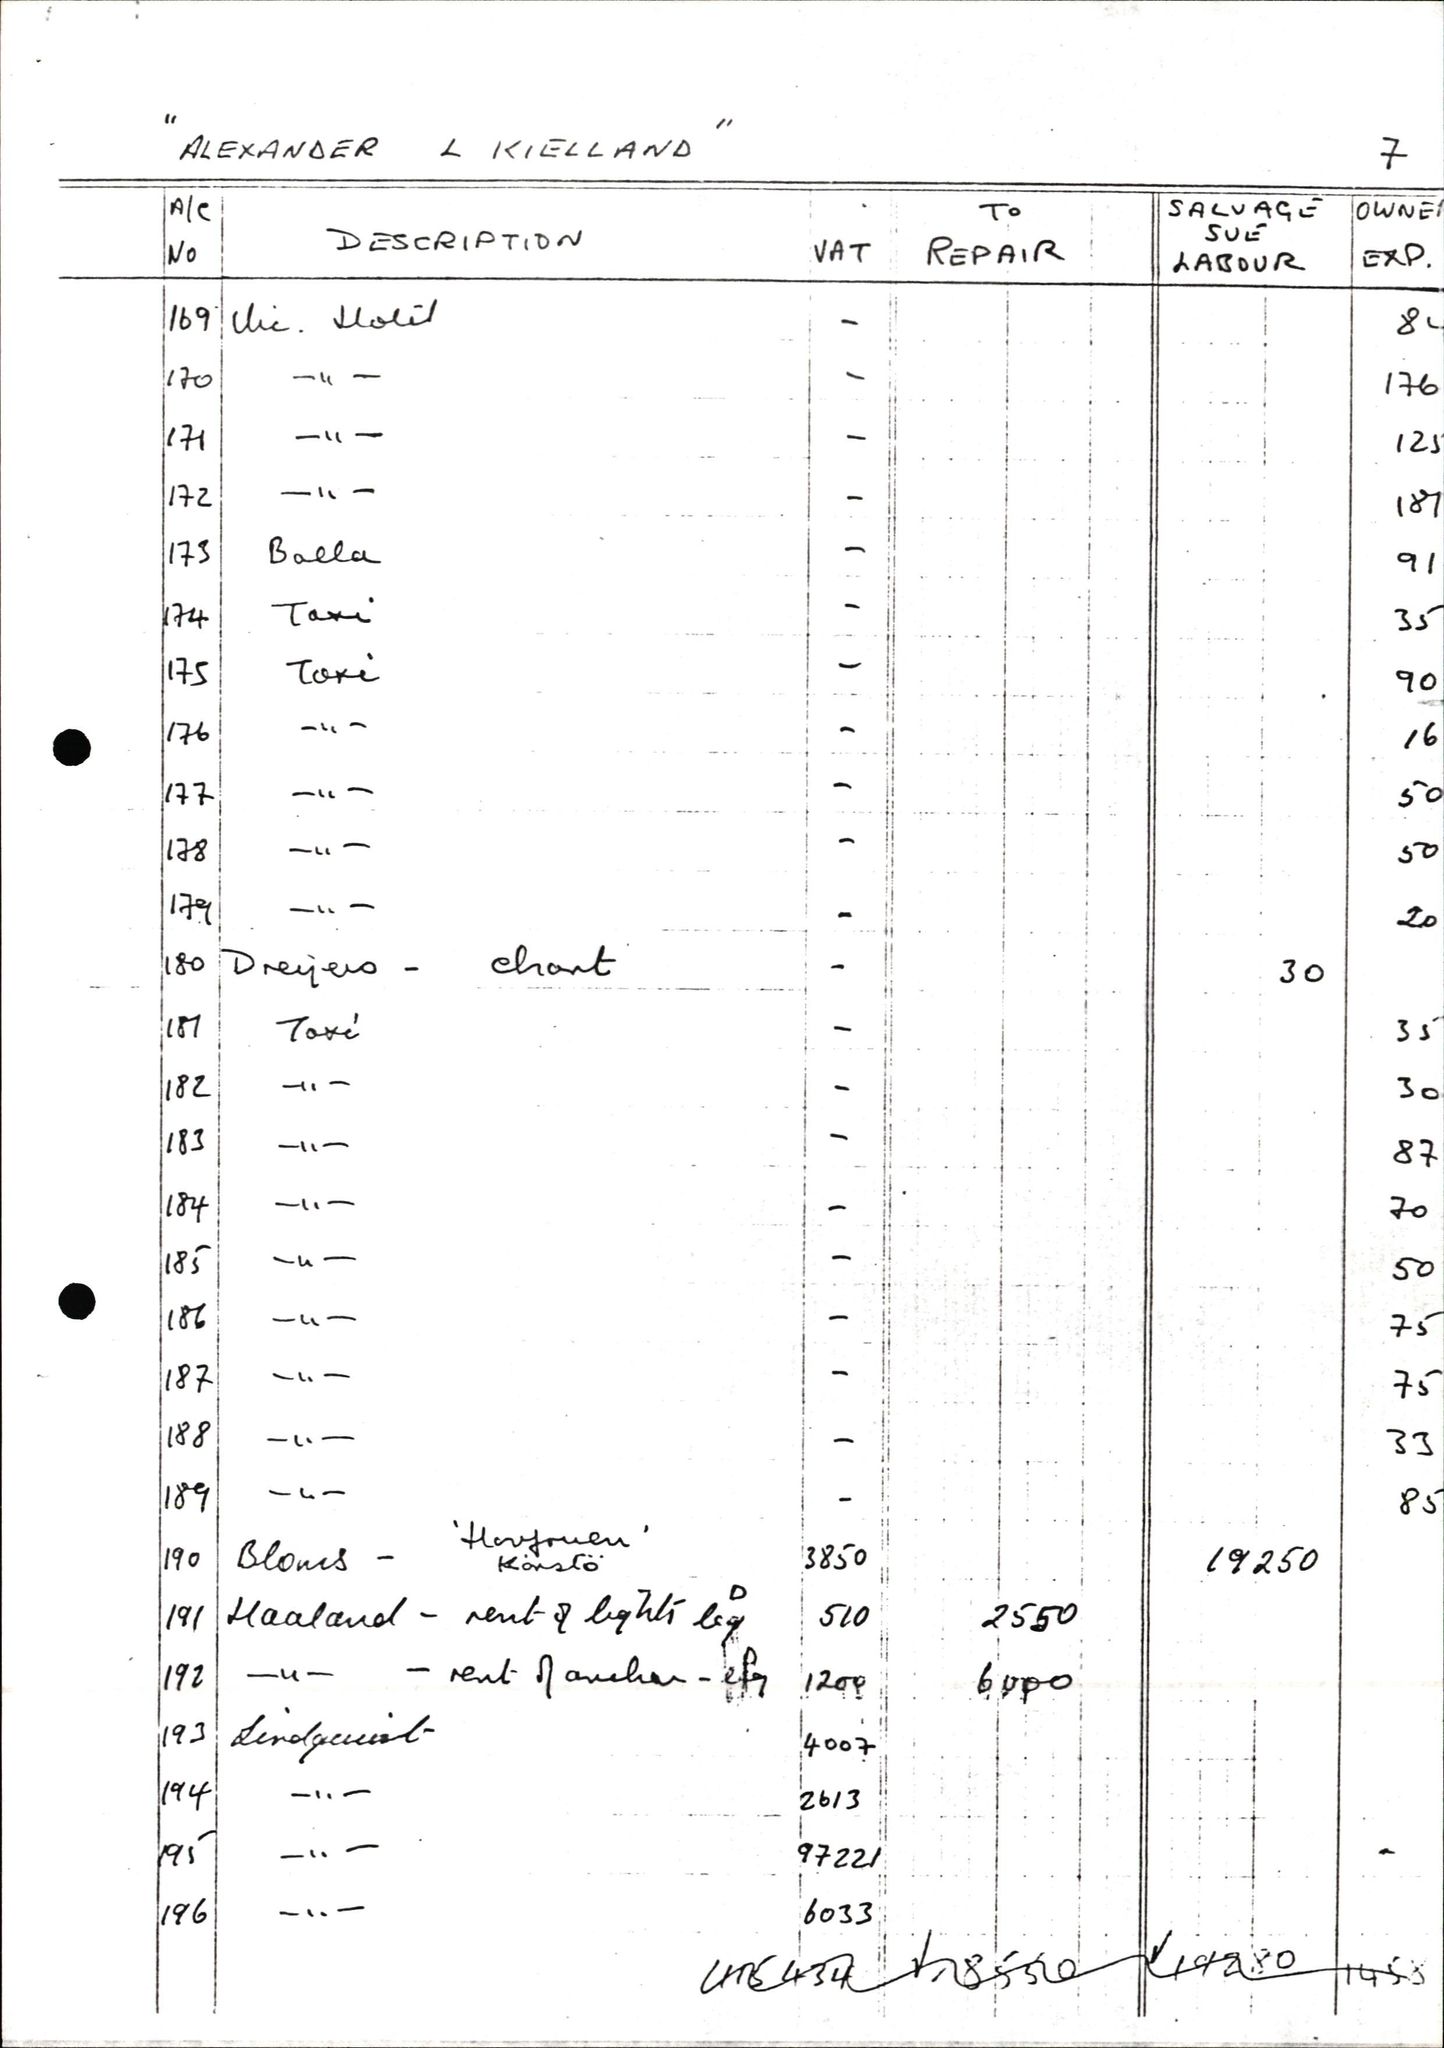 "ALEXANDER L KIELLAND" 7
A/C No DESCRIPTION VAT TO REPAIR SALVAGE SUE LABOUR OWNE EXP.
169 Vic. Hotel - 8
170 -"- - 176
171 -"- - 125
172 -"- - 187
173 Balla - 91
174 Taxi - 35
175 Taxi - 90
176 -"- - 16
177 -"- - 50
178 -"- - 50
179 -"- - 20
180 Dreyers - chart - 30
181 Taxi - 35
182 -"- - 30
183 -"- - 87
184 -"- - 70
185 -"- - 50
186 -"- - 75
187 -"- - 75
188 -"- - 33
189 -"- - 85
190 Bloms - 'Hovfruen' Kårstö 3850 19250
191 Haaland - rent of lights leg D 510 2550
192 -"- - rent of anchor - 1200 6000
193 Lindquist 4007
194 -"- 2613
195 -"- 97221 -
196 -"- 6033
8550 19280 1455